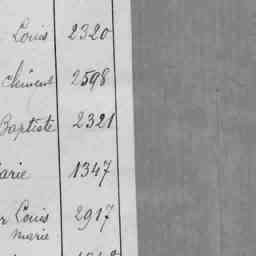 Louis 2320
Clément 2598
Baptiste 2321
arie 1347
r Louis 2917
marie